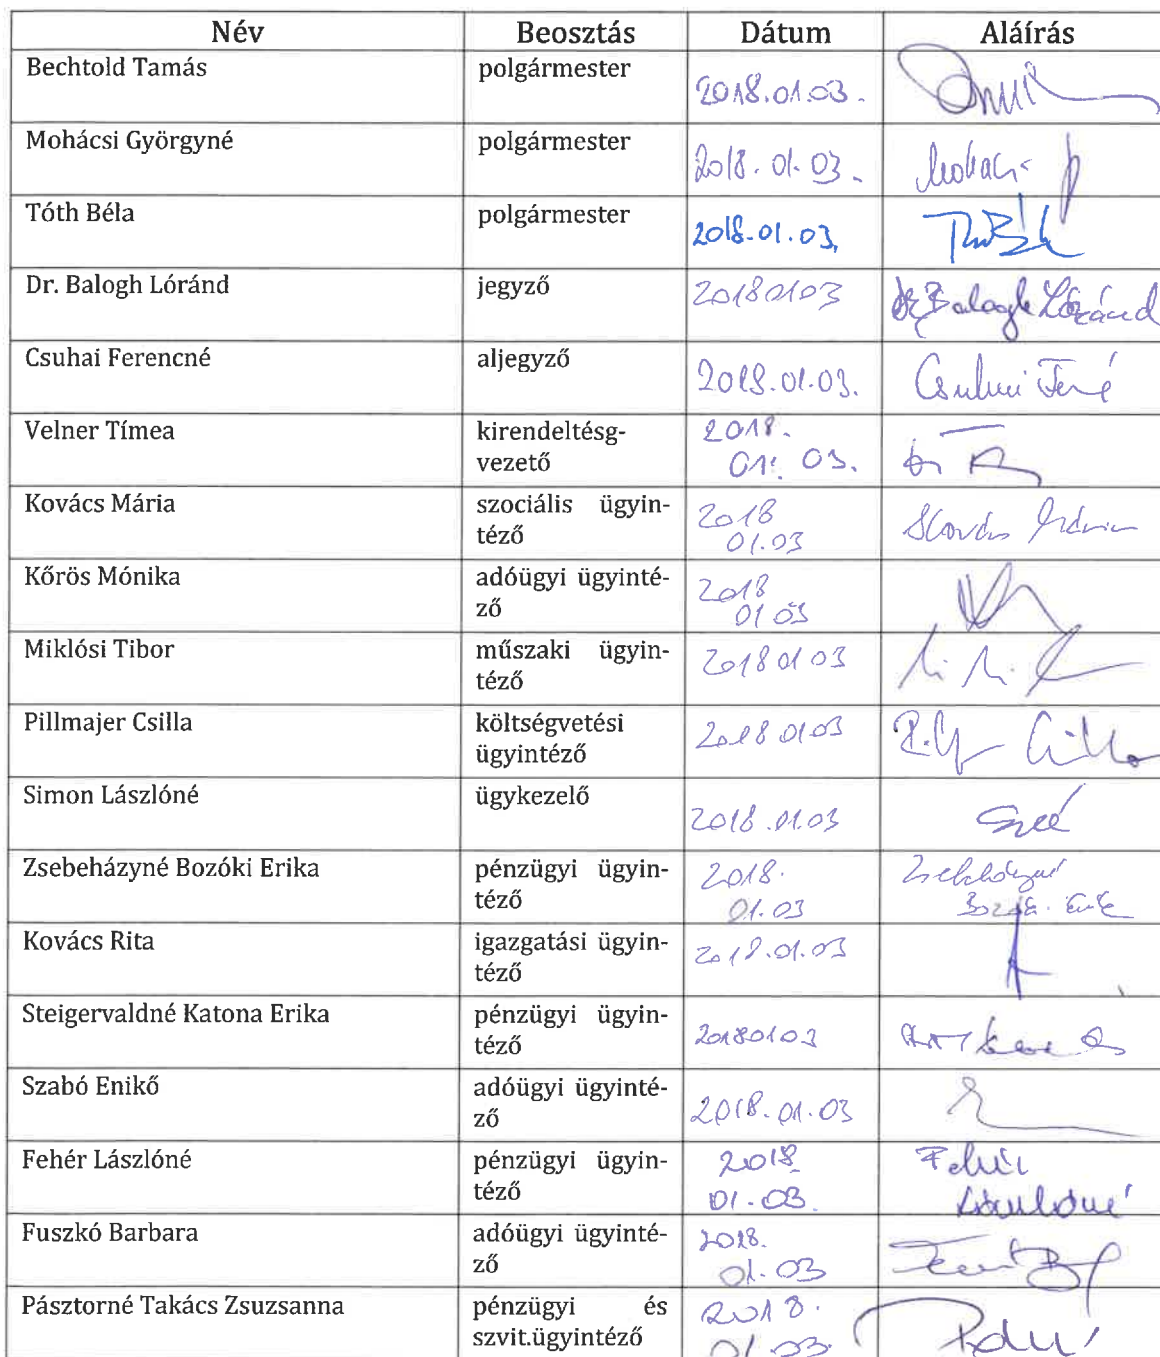 Név Beosztás Dátum Aláírás
Bechtold Tamás polgármester 2018.01.03.
Mohácsi Györgyné polgármester 2018.01.03. Mohácsi
Tóth Béla polgármester 2018.01.03.
Dr. Balogh Lóránd jegyző 20180103 Dr Balogh Lóránd
Csuhai Ferencné aljegyző 2018.01.03. Csuhai Fené
Velner Tímea kirendeltésg- 2018.
vezető 01. 03.
Kovács Mária szociális ügyin- 2018 Kovács Mária
téző 01.03
Kőrös Mónika adóügyi ügyinté- 2018
ző 01 03
Miklósi Tibor műszaki ügyin- 2018 01 03
téző
Pillmajer Csilla költségvetési 2018 01 03 Csilla
ügyintéző
Simon Lászlóné ügykezelő
2018.01.03
Zsebeházyné Bozóki Erika pénzügyi ügyin- 2018. Zsebeházyné
téző 01.03 Bozóki Erika
Kovács Rita igazgatási ügyin- 2018.01.03
téző
Steigervaldné Katona Erika pénzügyi ügyin- 20180103
téző
Szabó Enikő adóügyi ügyinté- 2018.01.03
ző
Fehér Lászlóné pénzügyi ügyin- 2018 Fehér
téző 01.03. Lászlóné
Fuszkó Barbara adóügyi ügyinté- 2018.
ző 01.03
Pásztorné Takács Zsuzsanna pénzügyi és 2018.
szvit.ügyintéző 01.03.